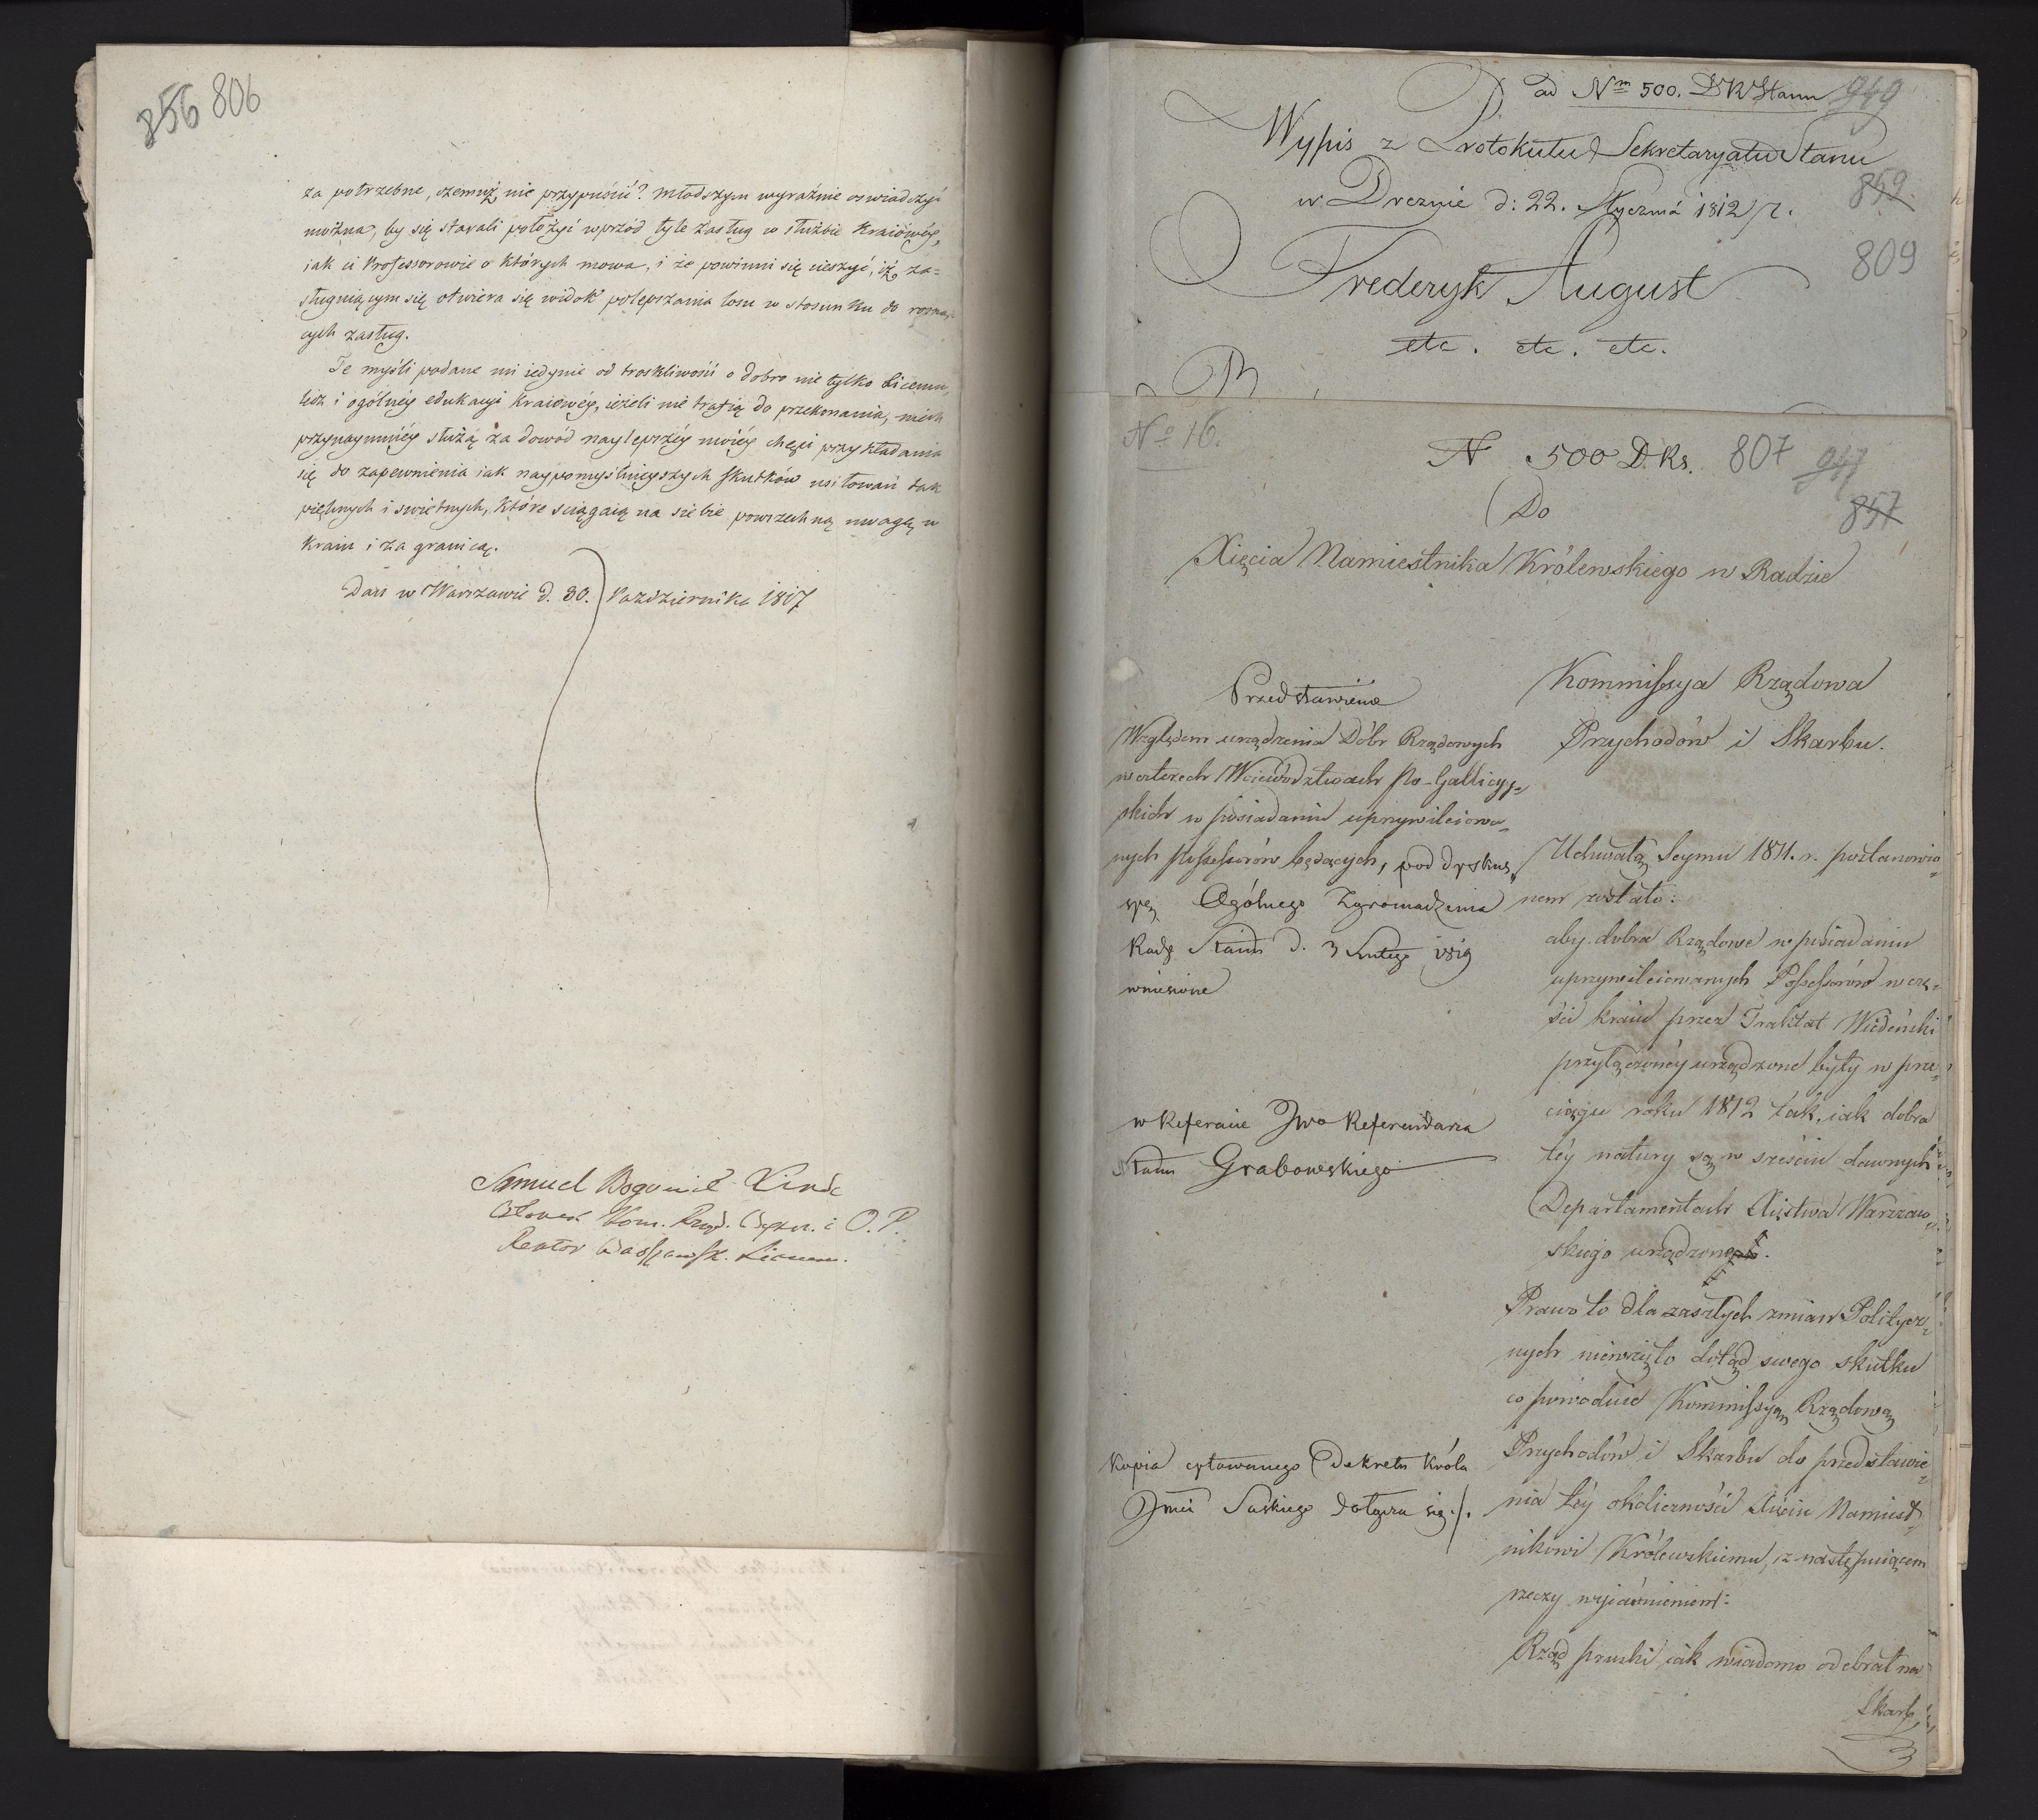 856 806
za potrzebne, czemuż nie przypuścić? młodszym wyraźnie oswiadczyć
można, by się starali położyć wprzód tyle zasług w służbie Kraiowéy,
iak ci Professorowie o których mowa, i że powinni się cieszyć, iż za=
sługuiącym się otwiera się widok polepszania losu w stosunku do rosną,
cych zasług.
Te myśli podane mi iedynie od troskliwości o dobro nie tylko Liceum,
lecz i ogólnéy edukacyi Kraiowéy, ieżeli nie trafią do przekonania, niech
przynaymniéy służą za dowód naylepszéy moiéy chęci przykładania
się do zapewnienia iak naypomyślnieyszych skutków usiłowań tak
pięknych i swietnych, które sciągaią na siebie powszechną uwagę w
Kraiu i za granicą.
Dan w Warszawie d. 30. Października 1817
Samuel Bogumił Linde
Członek Kom. Rząd. i O. P.
Rektor Warszawsk. Liceum.
ad Nm 500. DKStanu 949
Wypis z Protokułu Sekretaryatu Stanu
w Dreznie d: 22. Stycznia 1812 r.
859.
809
Frederyk August
etc. etc. etc.
No 16.
N 500 D.Ks. 807 947
857
Do
Xięcia Namiestnika Królewskiego w Radzie
Przedstawienie
Względem urządzenia Dóbr Rządowych
w czterech Woiewództwach Po-Gallicyy=
skich w posiadaniu uprzywileiowa=
nych Possessorów będących, pod dyskus,
syę Ogólnego Zgromadzenia
Rady Stanu d. 3 Lutego 1819
wniesione
w Referacie Jwo Referendarza
Stanu Grabowskiego
Kopia cytowanego Dekretu Króla
Jmci Saskiego dołącza się ./.
Kommissya Rządowa
Przychodów i Skarbu.
Uchwałą Seymu 1811. r. postanowio=
nem zostało:
aby dobra Rządowe w posiadaniu
uprzywileiowanych Possessorów w czę=
ści kraiu przez Traktat Wiedeński
przyłączonéy urządzone były w prze=
ciągu roku 1812 tak, iak dobra
téy natury są w sześciu dawnych
Departamentach Xięstwa Warszaw=
skiego urządzone.
Prawo to dla zaszłych zmian Politycz=
nych niewzięło dotąd swego skutku
co powoduie Kommissyą Rządową
Przychodów i Skarbu do przedstawie=
nia téy okoliczności Xięciu Namiest=
nikowi Królewskiemu, z następuiącem
rzeczy wyiaśnieniem:
Rząd pruski iak wiadomo odebrał na
Skarb